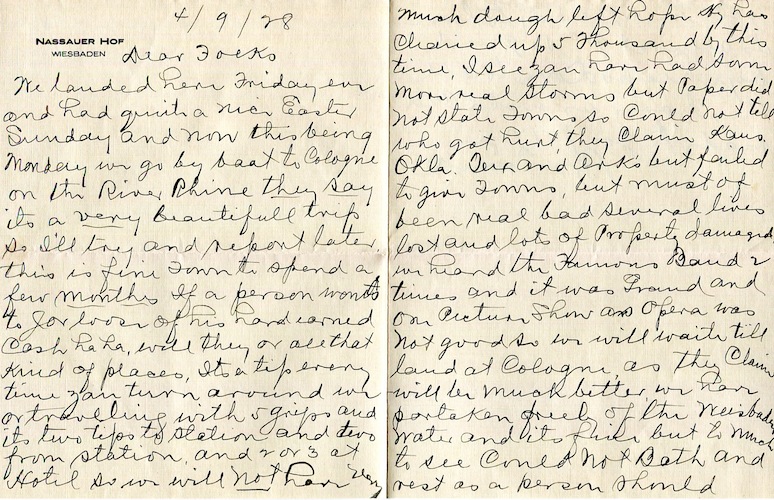 4/9/28
NASSAUER HOF
WIESBADEN
Dear Folks
We landed here Friday eve
and had quite a nice Easter
Sunday and now this being
Monday we go by boat to Cologne
on the River Rhine they say
its a very beautifull trip
so I'll try and report later
this is fine Town to spend a
few months If a person wants
to for loose of his hard earned
Cash Ha Ha, well they are all that
kind of places, Its a tip every
time you turn around we
are traveling with 5 grips and
its two tips to station and two
from station and 2 or 3 at
Hotel so we will Not have
much dough left hope Hy has
Cleaned up 5 Thousand by this
time, I see you have had some
more real Storms but Paper did
not State Towns so Could not tell
who got hurt, they Claim Kans.
Okla. Tex and Arks but failed
to give Towns, but must of
been real bad several lives
lost and lots of Property damaged
we heard the Famous Band 2
times and it was Grand and
one Picture Show as Opera was
not good so we will waite till
land at Cologne, as they Claim
will be much better we have
partaken freely of the Weisbaden
Water and its fine but to much
to see Could Not Bath and
rest as a person should